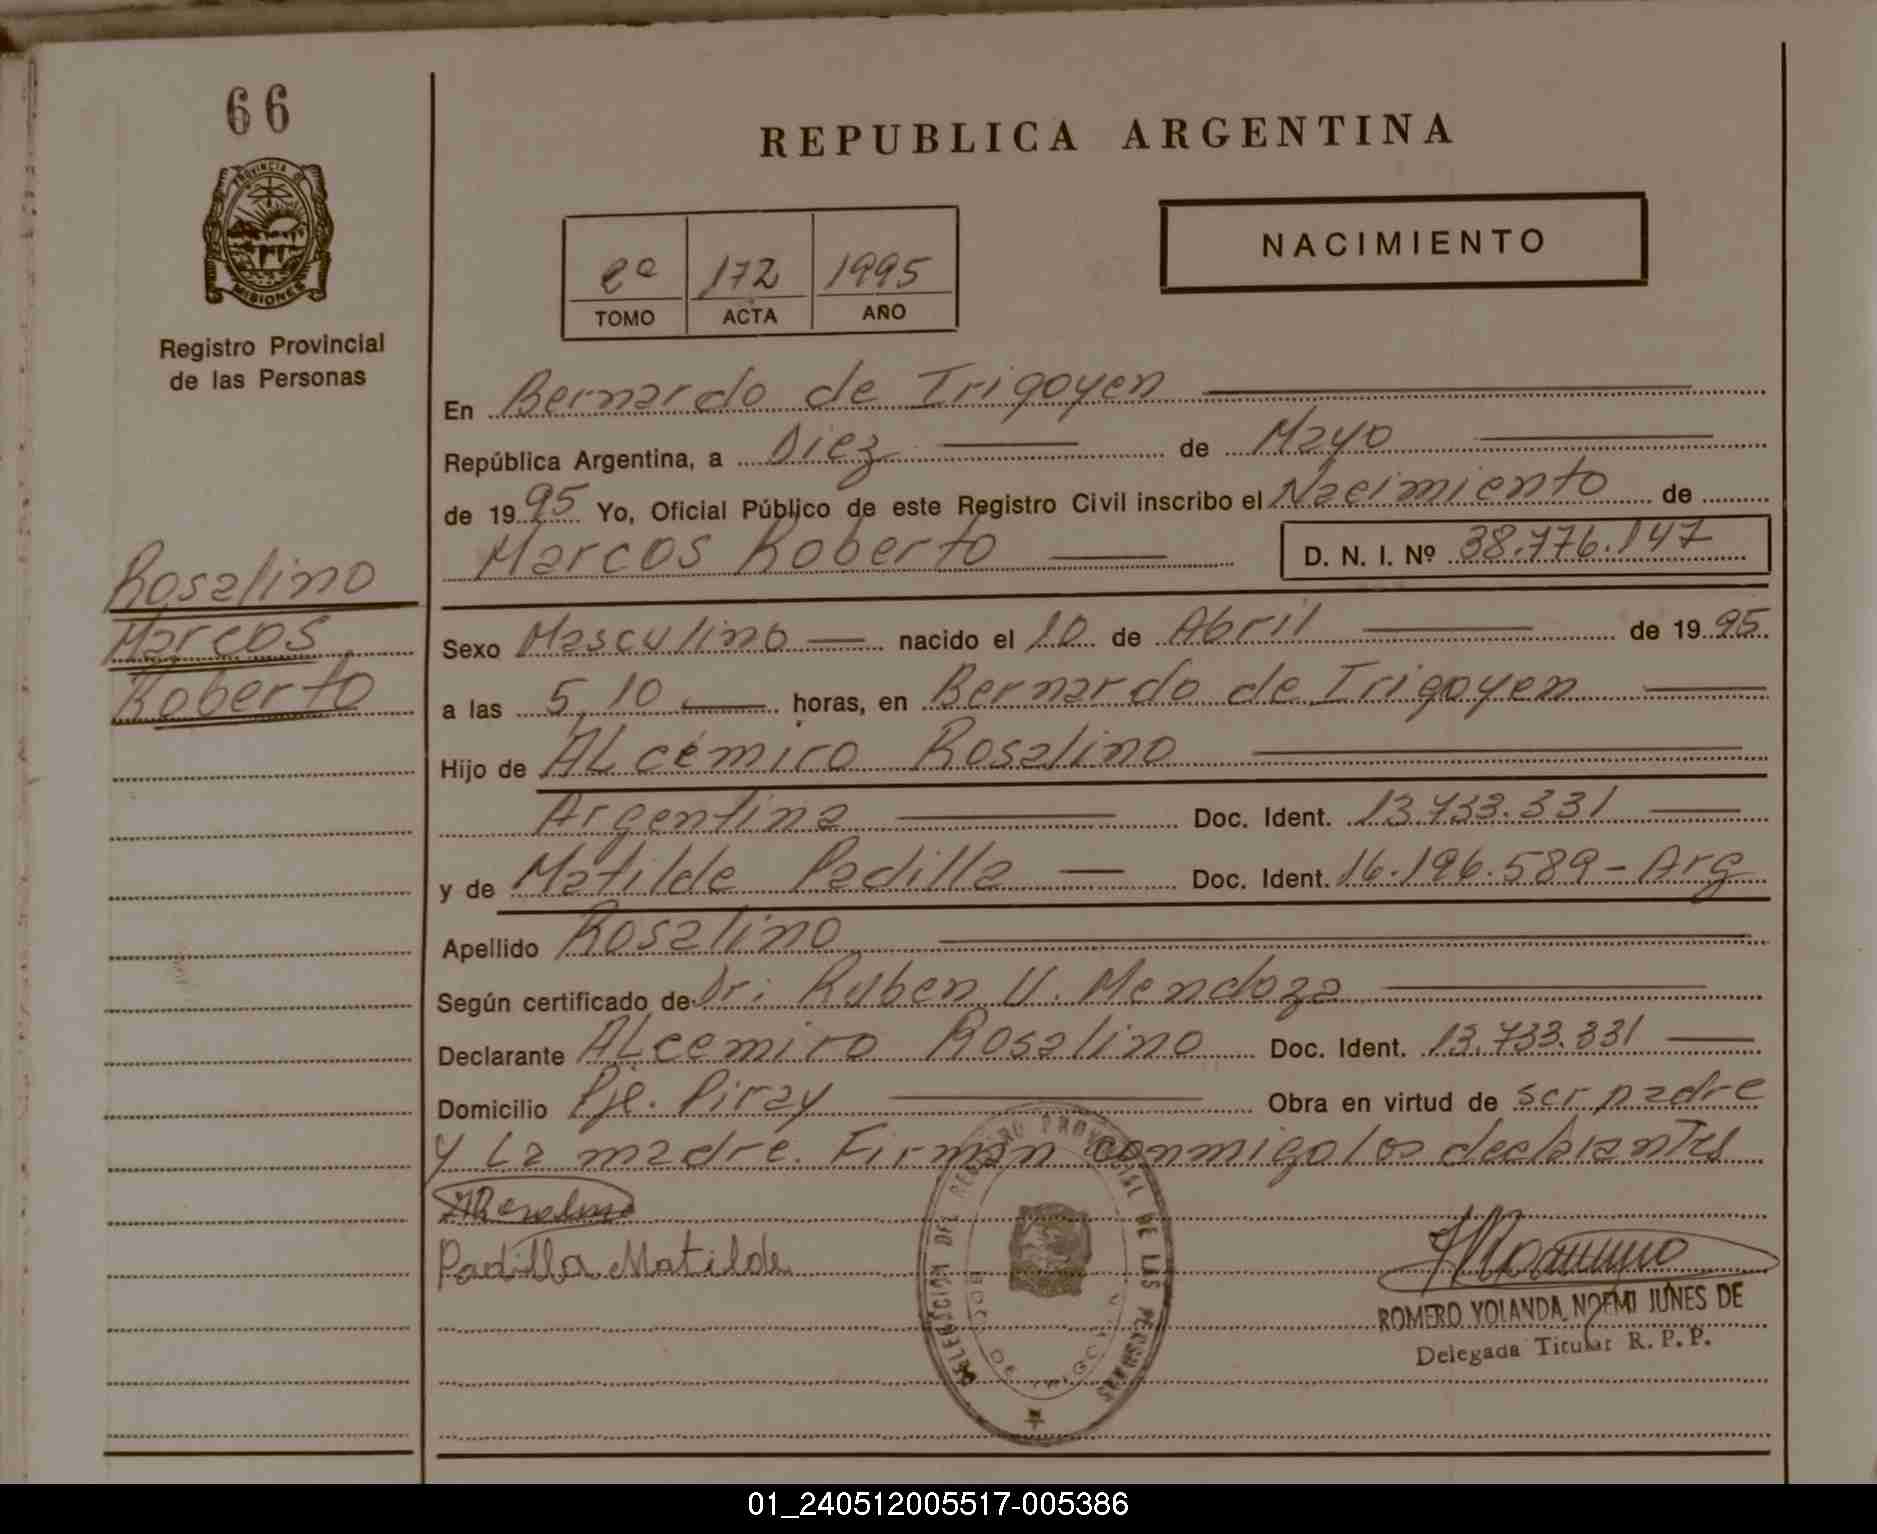 66
REPUBLICA ARGENTINA
PROVINCIA D
MISIONES
Registro Provincial
de las Personas
2º 172 1995
TOMO ACTA AÑO
NACIMIENTO
En Bernardo de Irigoyen
República Argentina, a Diez de Mayo
de 1995 Yo, Oficial Público de este Registro Civil inscribo el Nacimiento de
Marcos Roberto D. N. I. Nº 38.776.147
Rosalino
Marcos
Roberto
Sexo Masculino nacido el 10 de Abril de 1995
a las 5,10 horas, en Bernardo de Irigoyen
Hijo de ALcemiro Rosalino
Argentina Doc. Ident. 13.733.331
y de Matilde Padilla Doc. Ident. 16.196.589 - Arg
Apellido Rosalino
Según certificado de Dr: Ruben U. Mendoza
Declarante ALcemiro Rosalino Doc. Ident. 13.733.331
Domicilio Pje. Piray Obra en virtud de ser padre
y La madre. Firman conmigo los declarantes
Padilla Matilde
DELEGACION DEL REGISTRO PROVINCIAL DE LAS PERSONAS
ROMERO YOLANDA NOEMI JUNES DE
Delegada Titular R. P. P.
01_240512005517-005386